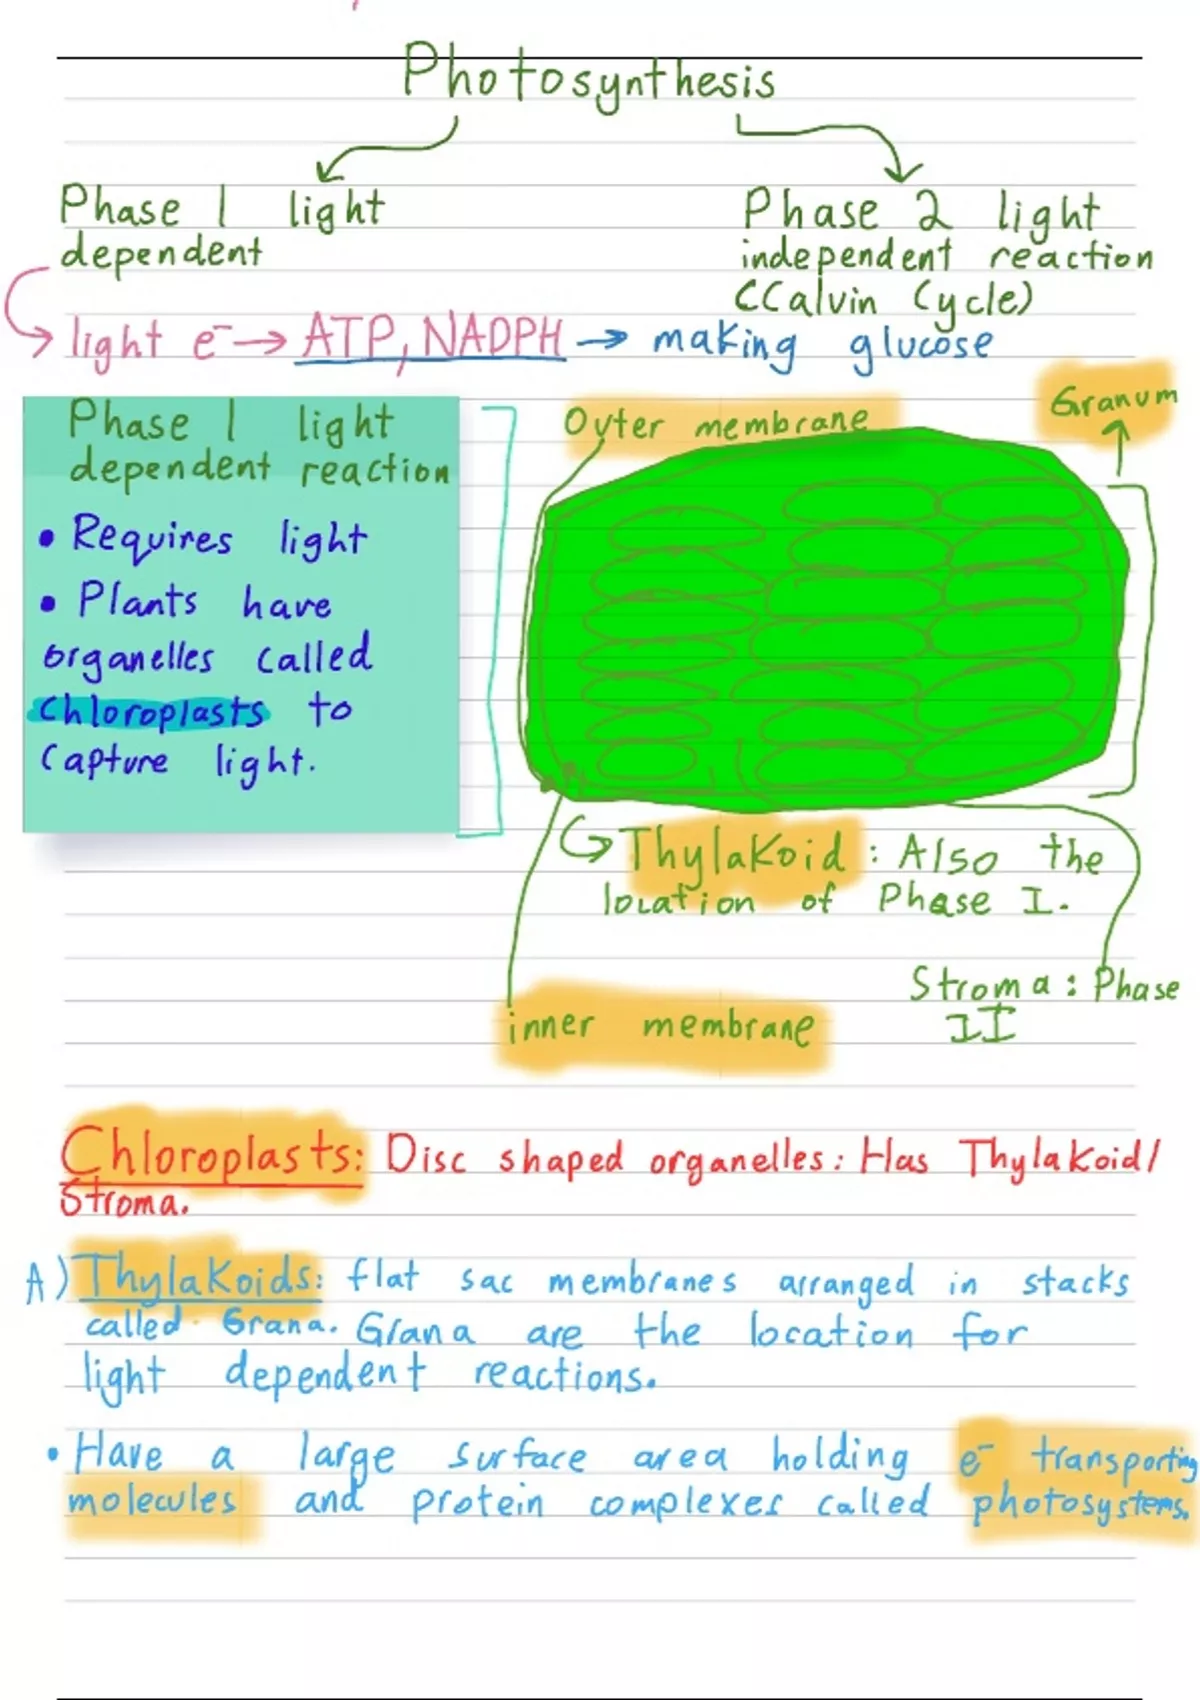 Photosynthesis
Phase 1 light
dependent
Phase 2 light
independent reaction
(Calvin Cycle)
light e⁻ → ATP, NADPH → making glucose
Phase 1 light
dependent reaction
• Requires light
• Plants have
organelles called
Chloroplasts to
capture light.
Outer membrane
Granum
Thylakoid : Also the
location of Phase I.
Stroma : Phase
II
inner membrane
Chloroplasts: Disc shaped organelles: Has Thylakoid/
Stroma.
A) Thylakoids: flat sac membranes arranged in stacks
called Grana. Grana are the location for
light dependent reactions.
• Have a large surface area holding e⁻ transporting
molecules and protein complexes called photosystems.